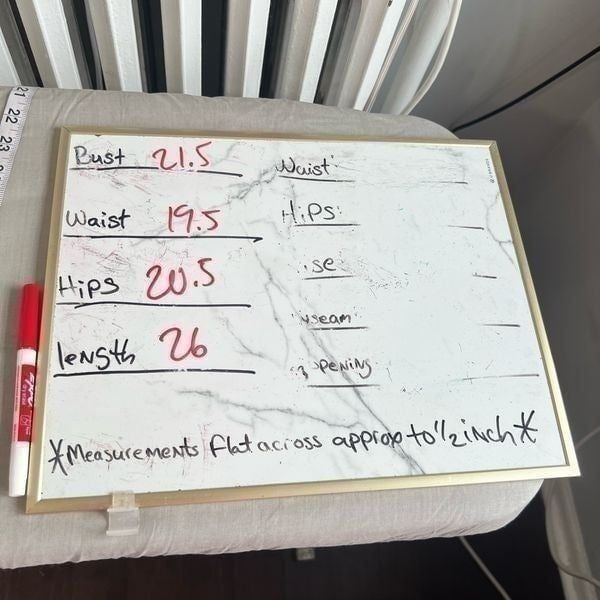 Bust 21.5
Waist 19.5
Hips 20.5
length 26
Waist
Hips
se
seam
pening
*Measurements flat across approx to 1/2 inch*
21
22
23
expo